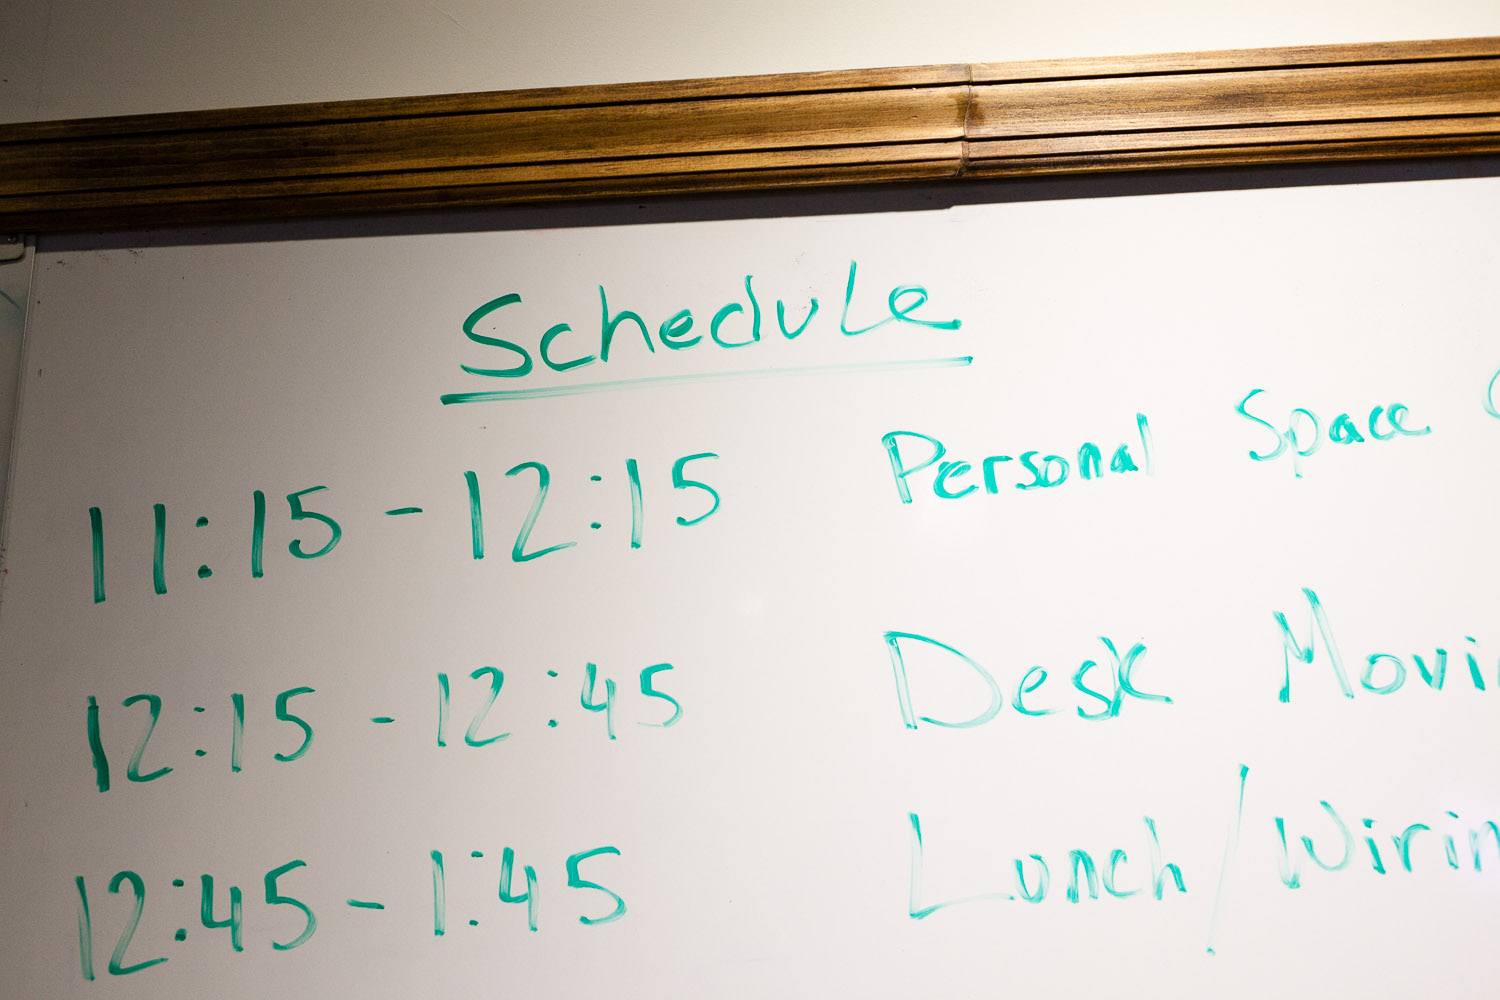 Schedule
11:15 - 12:15 Personal Space
12:15 - 12:45 Desk Movi
12:45 - 1:45 Lunch/Wirin